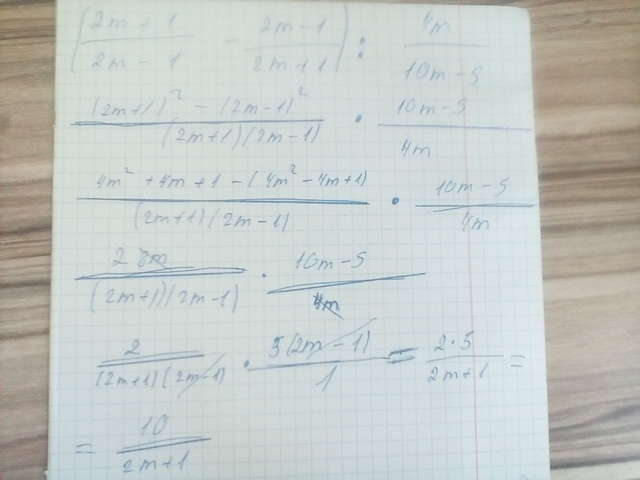 (2m + 1 / 2m - 1 - 2m - 1 / 2m + 1) : 4m / 10m - 5
(2m+1)² - (2m-1)² / (2m+1)(2m-1) · 10m - 5 / 4m
4m² + 4m + 1 - (4m² - 4m + 1) / (2m+1)(2m-1) · 10m - 5 / 4m
2 8m / (2m+1)(2m-1) · 10m - 5 / 4m
2 / (2m+1)(2m-1) · 5(2m - 1) / 1 = 2·5 / 2m+1 =
= 10 / 2m+1